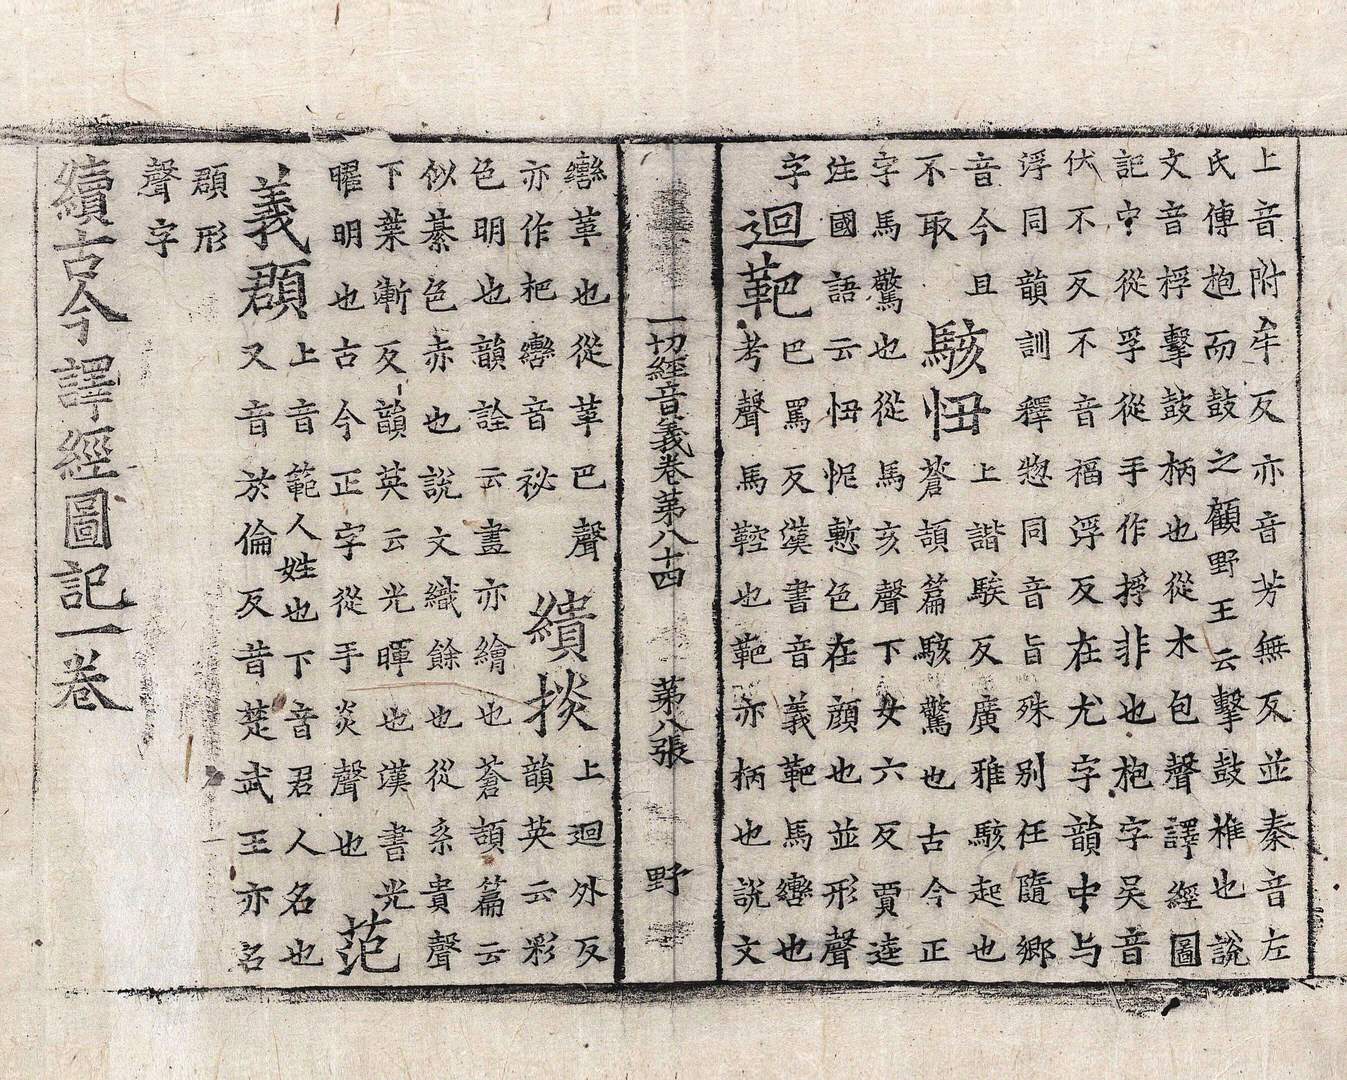 上音附牟反亦音芳無反並秦音左
氏傳枹而鼓之顧野王云擊鼓椎也說
文音桴擊鼓柄也從木包聲譯經圖
記中從孚從手作捊非也枹字吳音
伏不反不音福浮反在尤字韻中与
浮同韻訓釋惣同音旨殊別任隨鄉
音今且
駭忸
上諧駭反廣雅駭起也
不取
蒼頡篇駭驚也古今正
字馬驚也從馬亥聲下女六反賈逵
注國語云忸怩慙色在顔也並形聲
字
迴靶
巴罵反漢書音義靶馬轡也
考聲馬鞚也靶亦柄也說文
一切經音義卷第八十四 第八張 野
轡革也從革巴聲
繢掞
上迴外反
亦作杷轡音祕
韻英云彩
色明也韻詮云畫亦繪也蒼頡篇云
似綦色赤也說文織餘也從糸貴聲
下葉漸反韻英云光暉也漢書光
曜明也古今正字從手炎聲也
范
義頵
上音範人姓也下音君人名也
又音於倫反昔楚武王亦名
頵形
聲字
續古今譯經圖記一卷